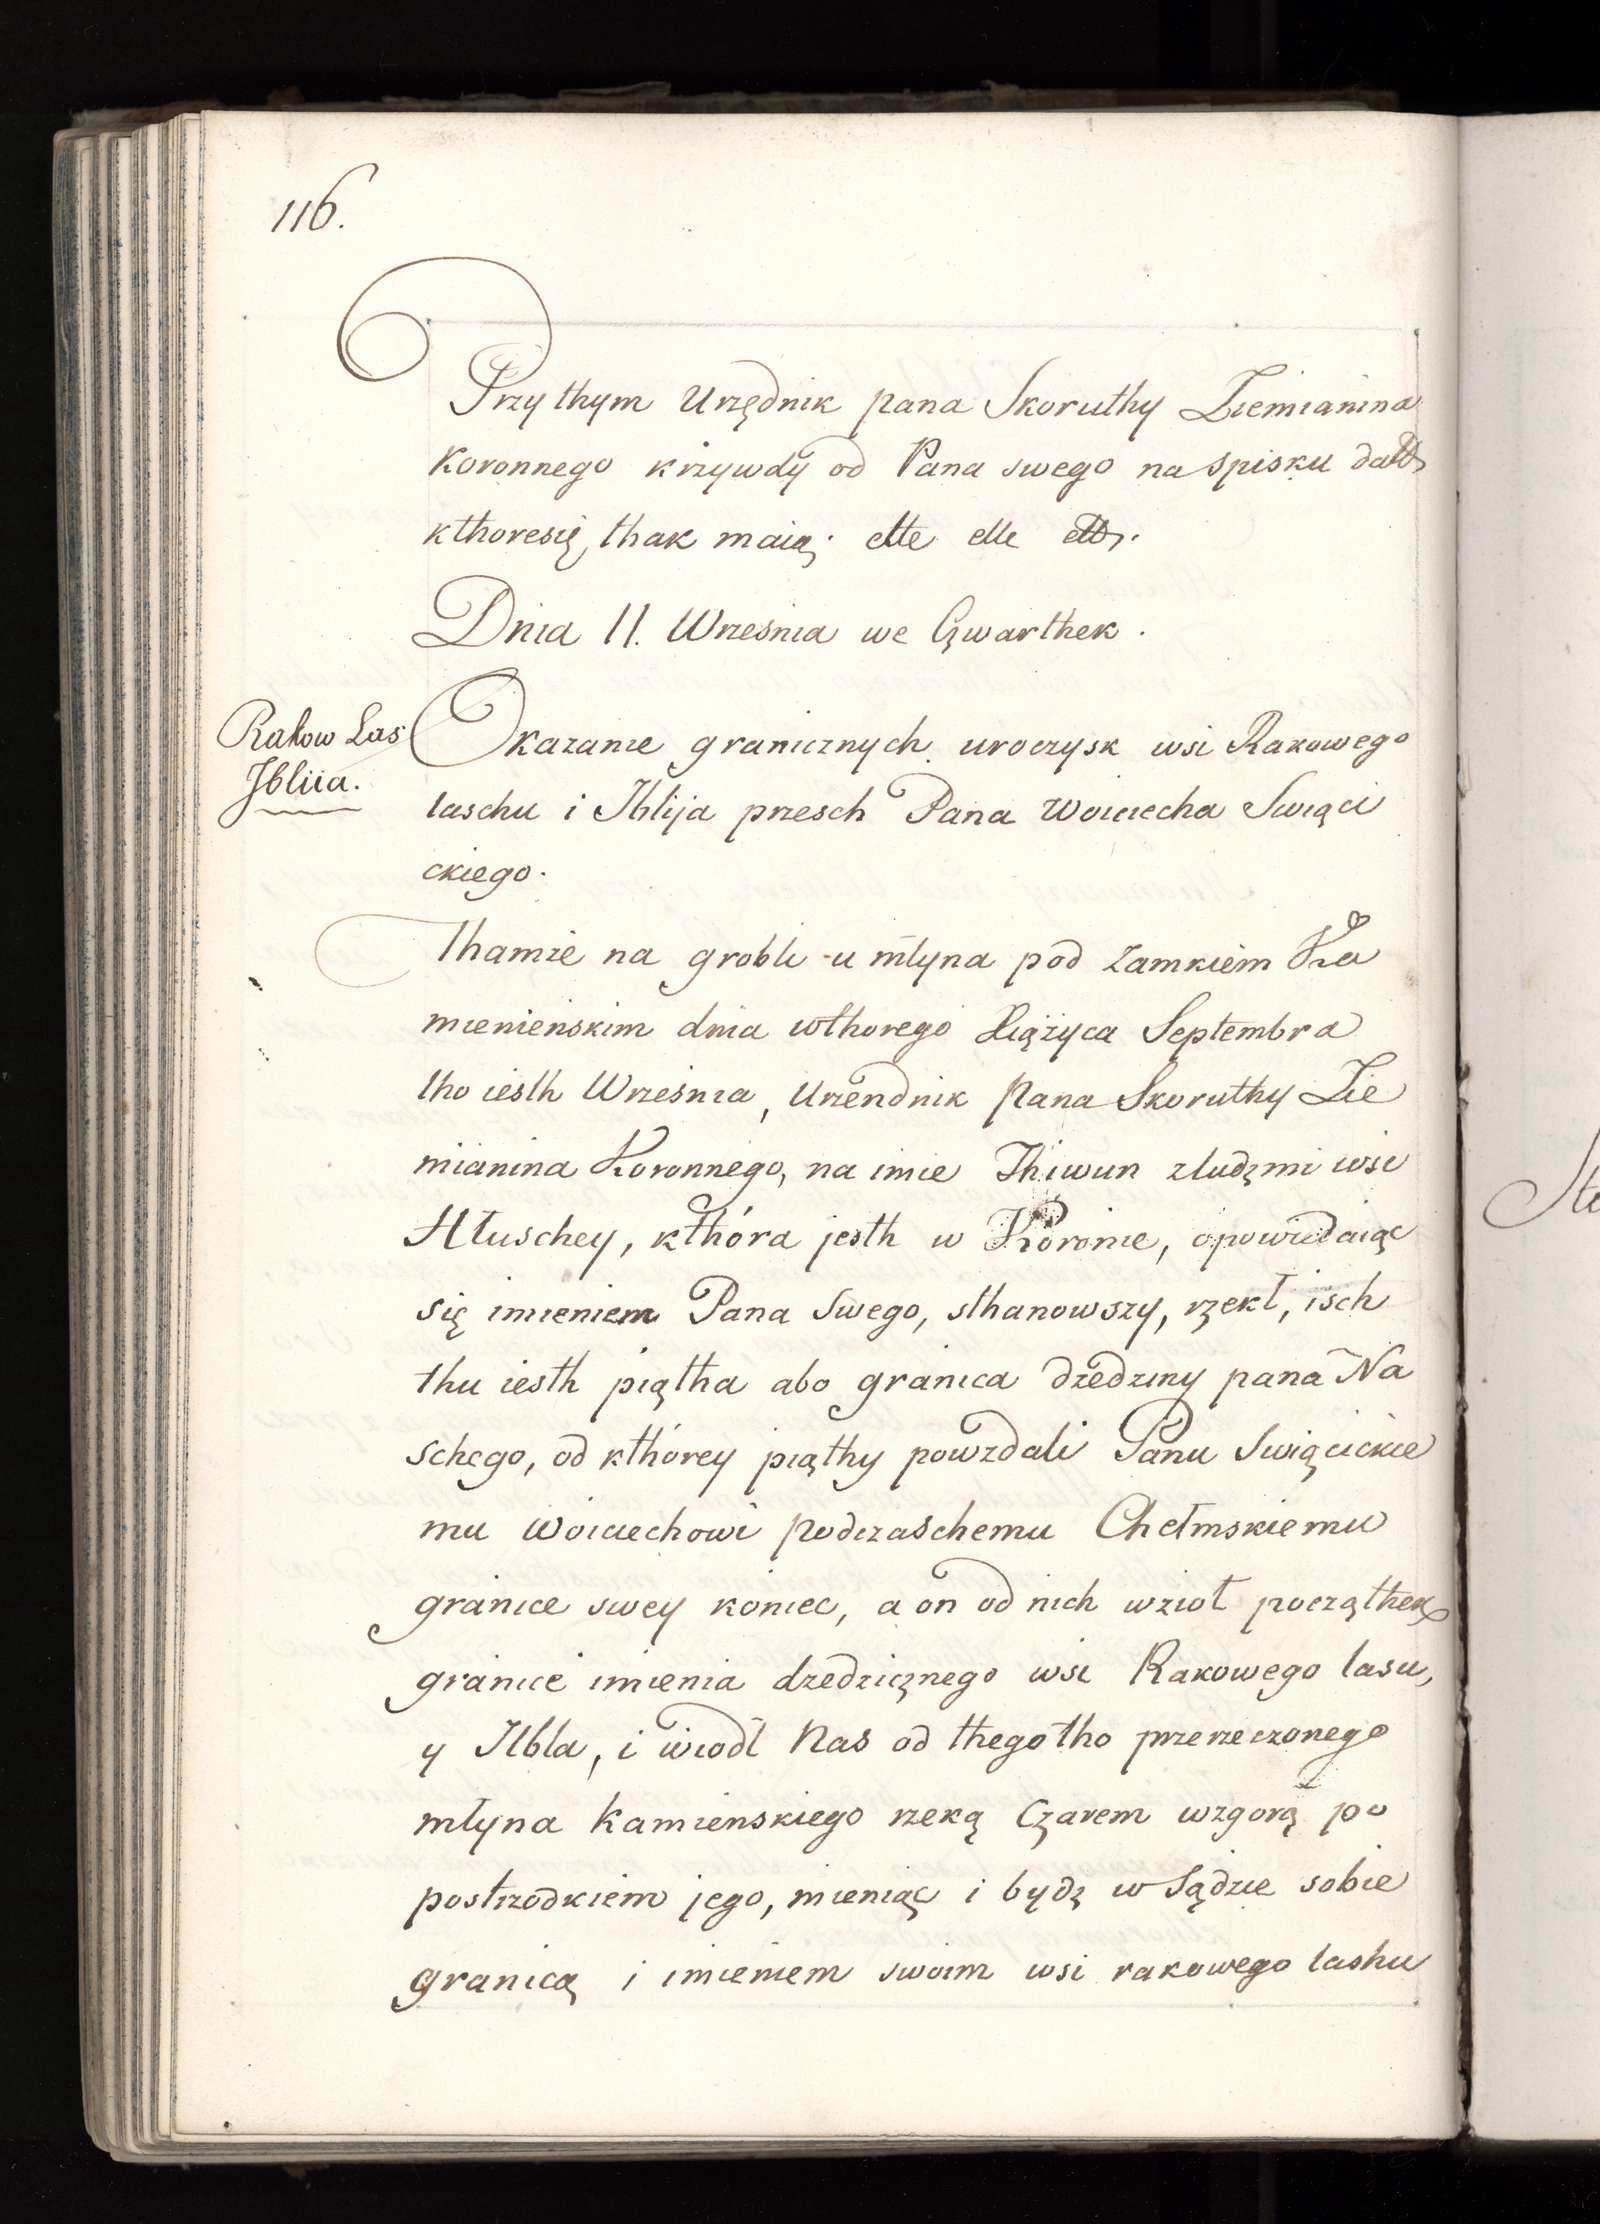 116.
Przy thym Urzędnik pana Skoruthy Ziemianina
Koronnego krzywdy od Pana swego na spisku dałł
kthoresię thak maią; ette ette ette.
Dnia 11. Wrzesnia we Czwarthek.
Rakow Las
Jbliia.
Okazanie granicznych uroczysk wsi Rakowego
laschu i Jblija przesch Pana Woiciecha Swięci
ckiego.
Thamże na grobli u młyna pod Zamkiem Ka
mienieńskim dnia wthorego Xiążyca Septembra
tho iesth Wrzesnia, Urzendnik Pana Skoruthy Zie
mianina Koronnego, na imie Thiwun zludzmi wsi
Hłuschey, kthóra jesth w Koronie, opowiedaiąc
się imieniem Pana Swego, sthanowszy, rzekł, isch
thu iesth piątha abo granica dziedziny pana Na
schego, od kthórey piąthy powzdali Panu Swięcickie
mu Woiciechowi podczaschemu Chełmskiemu
granice swey koniec, a on od nich wzioł począthek
granice imienia dziedzicznego wsi Rakowego lasu,
y Jlbla, i wiodł Nas od thegotho przerzeczonego
młyna Kamienskiego rzeką Czarem wzgorą po
postrzodkiem jego, mieniąc i bydz w Sądzie sobie
granicą i imieniem swoim wsi rakowego lashu